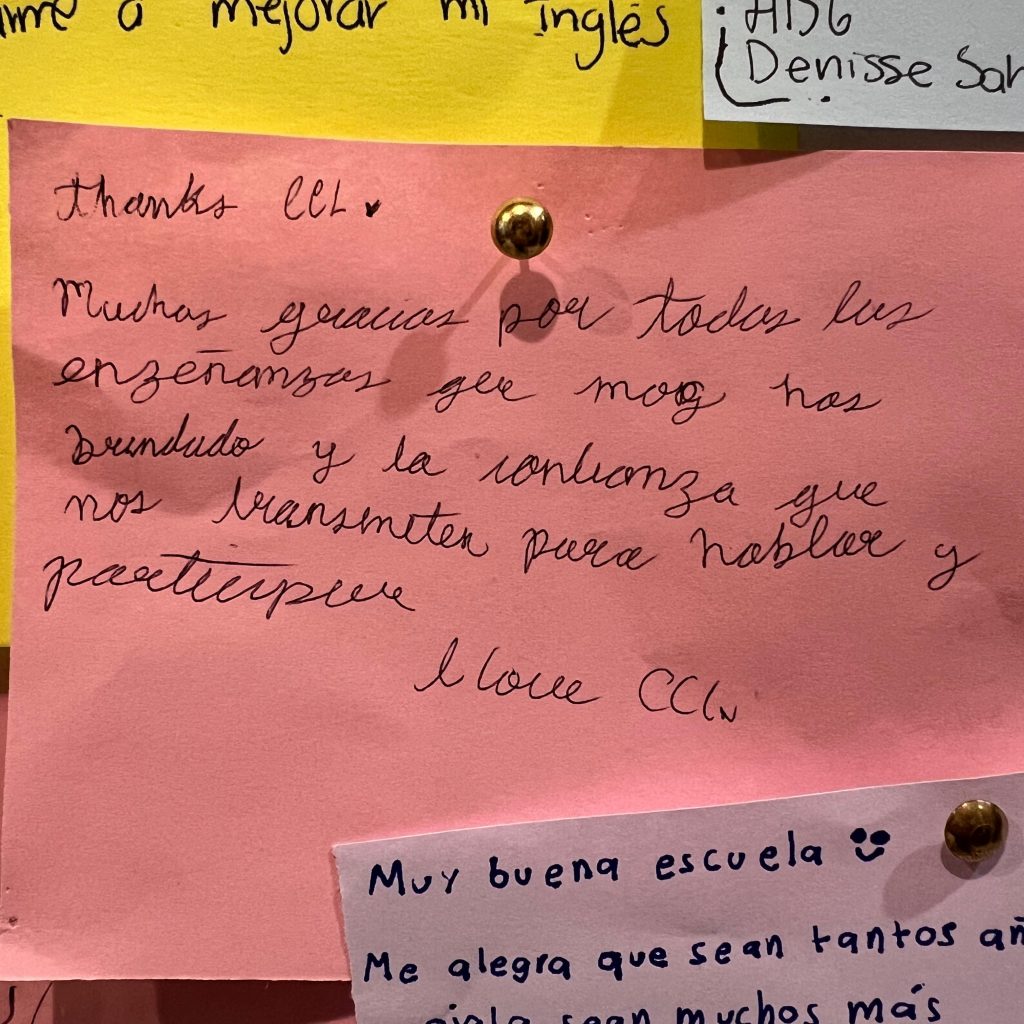 a mejorar mi Inglés
HDG
Denisse
thanks CCL
Muchas gracias por todas las
enzeñanzas que nos has
brindado y la confianza que
nos transmiten para hablar y
participar
I love CCL
Muy buena escuela
Me alegra que sean tantos añ
sean muchos más